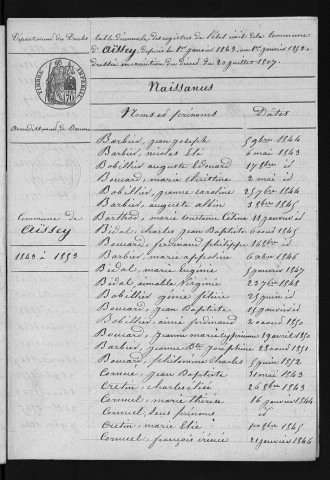 Département du Doubs
table décennale des registres de l'état civil de la Commune
d'Aissey, depuis le 1er janvier 1843, au 1er janvier 1853
dressée en exécution du décret du 20 juillet 1807.
TIMBRE IMPERIAL
Naissances
Noms et prénoms Dates
Arrondissement de Baume
Commune de
Aissey
1843 à 1853
Barbier, jean joseph 5 9bre 1844
Barbier, nicolas Elé 6 mai 1843
Bobillier auguste Edouard 17 8bre id
Bouard, marie christine 2 mai id
Bobillier, jeanne caroline 25 7bre 1844
Barbier, auguste albin 3 8bre 1845
Barthod, marie constance Céline 11 janvier id
Bidal, charles jean Baptiste 6 août 1845
Bouard, ferdinand philippe 16 8bre id
Barbier, marie appoline 6 avril 1846
Bidal, marie Eugénie 5 janvier 1847
Bidal, aimable Virginie 23 7bre 1848
Bobillier génie féline 25 juin id
Bouard, jean Baptiste 15 janvier id
Bobillier, aimé ferdinand 2 août 1850
Bouard, jeanne marie 1 avril 1850
Barbier, jeanne Bte joséphine 28 août 1851
Bouard, philomène charles 5 juin 1852
Cornue, jean Baptiste 31 mai 1843
Cretin, charles elisé 26 8bre 1843
Cornuel, marie thérèse 16 janvier 1844
Cornuel, sans prénoms id
Cretin, marie Elié 1er 8bre 1845
Cornuel, françois irénée 21 janvier 1846